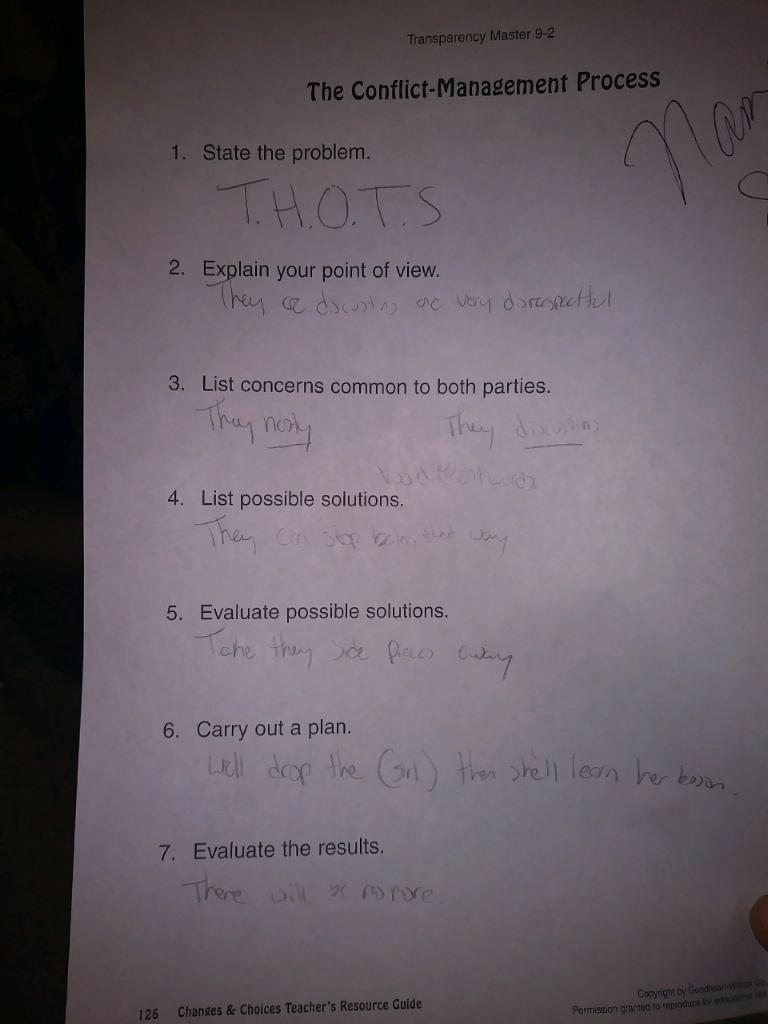 Transparency Master 9-2
The Conflict-Management Process
Nam
1. State the problem.
T.H.O.T.S
2. Explain your point of view.
They are discusting and very disrespectful
3. List concerns common to both parties.
They nasty They discusting
4. List possible solutions.
They can stop being that way
5. Evaluate possible solutions.
Take they side places away
6. Carry out a plan.
Well drop the (girl) then she'll learn her lesson.
7. Evaluate the results.
There will be no more.
126 Changes & Choices Teacher's Resource Guide
Copyright by Goodheart-Willcox Co.
Permission granted to reproduce for educational use